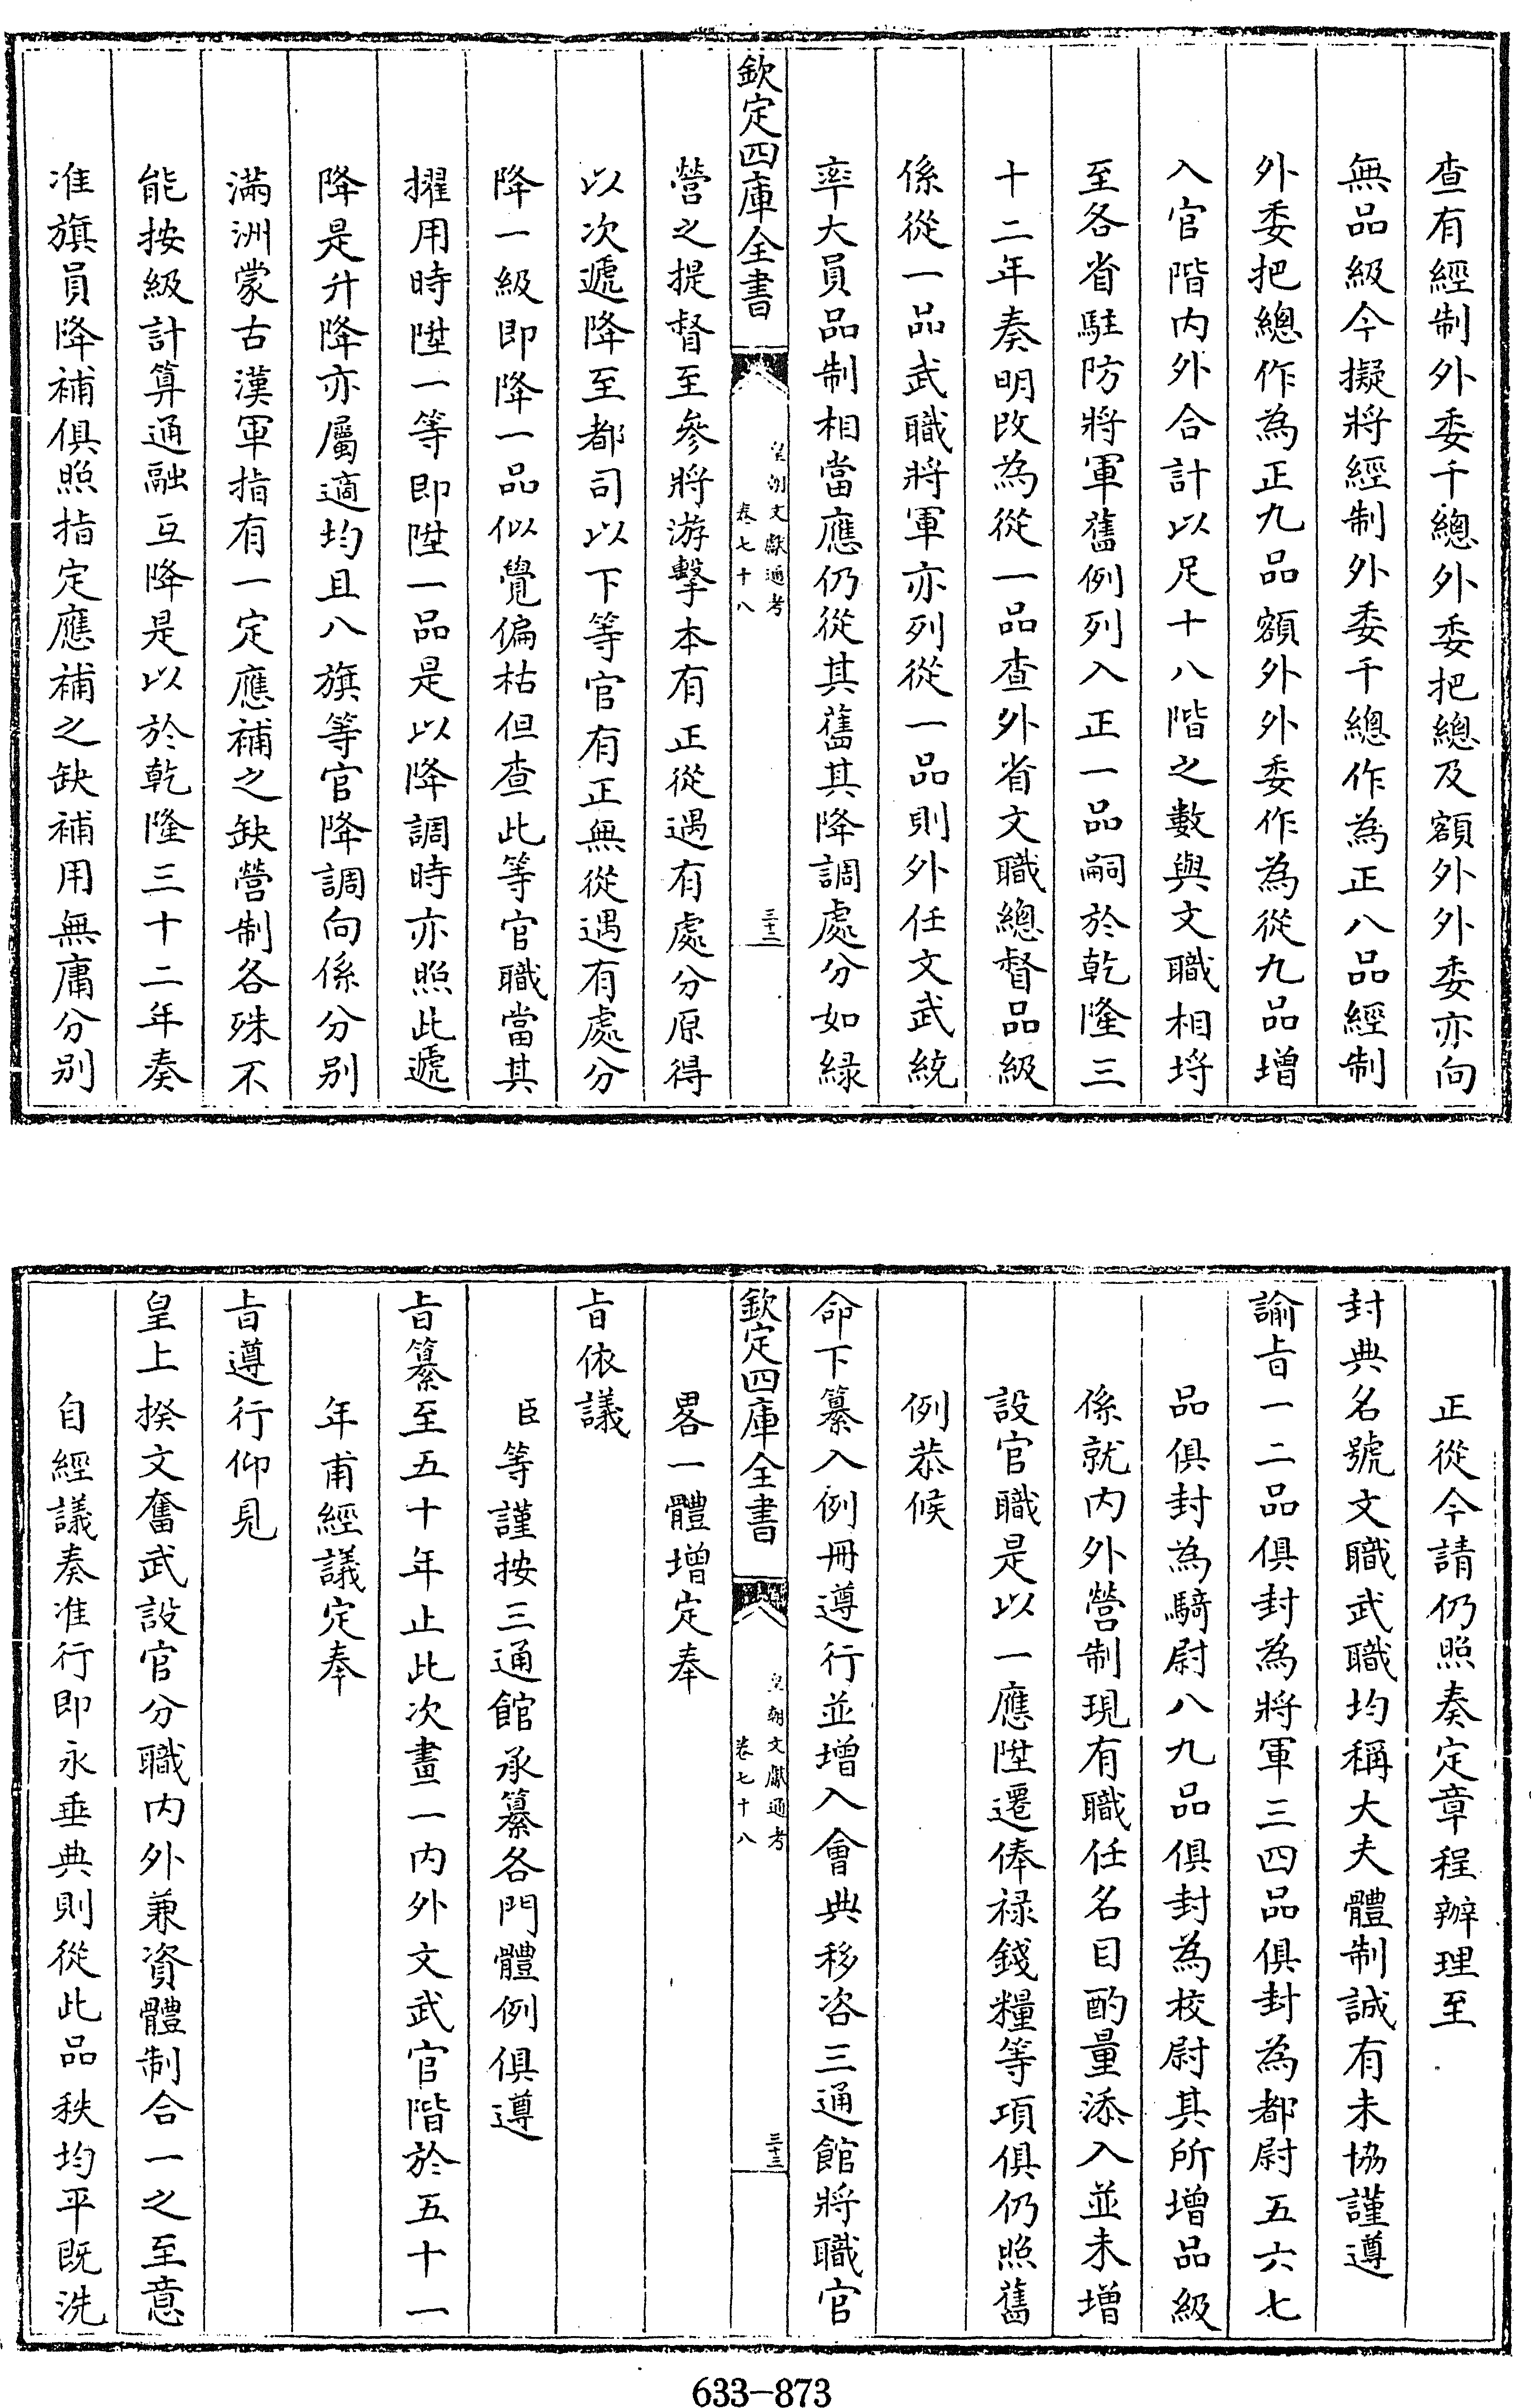 查有經制外委千總外委把總及額外外委亦向
無品級今擬將經制外委千總作為正八品經制
外委把總作為正九品額外外委作為從九品增
入官階内外合計以足十八階之數與文職相埒
至各省駐防將軍舊例列入正一品嗣於乾隆三
十二年奏明改為從一品查外省文職總督品級
係從一品武職將軍亦列從一品則外任文武統
率大員品制相當應仍從其舊其降調處分如緑
欽定四庫全書
皇朝文獻通考
卷七十八
三十二
營之提督至參將游擊本有正從遇有處分原得
以次遞降至都司以下等官有正無從遇有處分
降一級即降一品似覺偏枯但查此等官職當其
擢用時陞一等即陞一品是以降調時亦照此遞
降是升降亦屬適均且八旗等官降調向係分别
滿洲蒙古漢軍指有一定應補之缺營制各殊不
能按級計算通融互降是以於乾隆三十二年奏
准旗員降補俱照指定應補之缺補用無庸分别
正從今請仍照奏定章程辦理至
封典名號文職武職均稱大夫體制誠有未協謹遵
諭旨一二品俱封為將軍三四品俱封為都尉五六七
品俱封為騎尉八九品俱封為校尉其所增品級
係就内外營制現有職任名目酌量添入並未增
設官職是以一應陞遷俸禄錢糧等項俱仍照舊
例恭候
命下纂入例冊遵行並增入會典移咨三通館將職官
欽定四庫全書
皇朝文獻通考
卷七十八
三十三
畧一體增定奉
旨依議
臣等謹按三通館承纂各門體例俱遵
旨纂至五十年止此次畫一内外文武官階於五十一
年甫經議定奉
旨遵行仰見
皇上揆文奮武設官分職内外兼資體制合一之至意
自經議奏准行即永垂典則從此品秩均平既洗
633-873